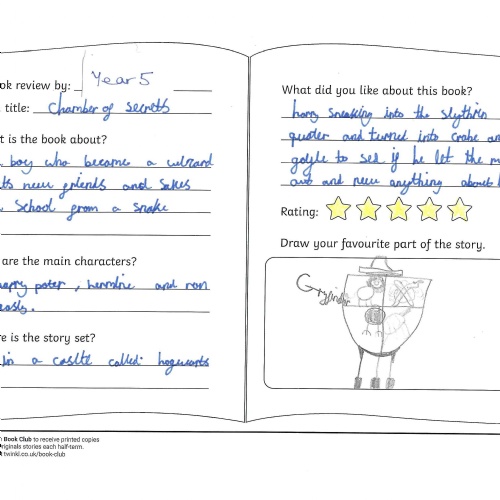 ok review by: Year 5
title: Chamber of secrets
t is the book about?
boy who became a wizard
new friends and sakes
School from a snake
are the main characters?
poter, hermine and ron
easly.
re is the story set?
in a caslte called: hogwarts
What did you like about this book?
harry sneaking into the slythrin
quoter and turned into crabe an
goyle to see if he let the m
out and new anything about
Rating:
Draw your favourite part of the story.
Gryfindor
Book Club to receive printed copies
riginals stories each half-term.
twinkl.co.uk/book-club